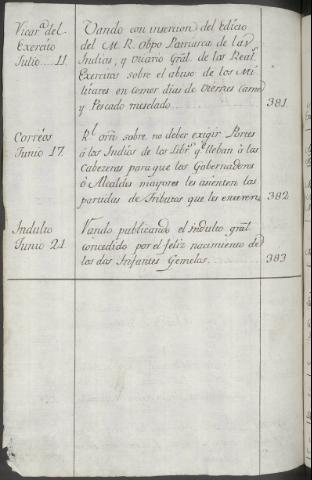 Vicar.ª del
Exercito
Julio .. 11.
Vando con insercion del Edicto
del M. R. Obpo Patriarca de las
Indias, y Vicario Gral. de los Real.s
Exercitos sobre el abuso de los Mi-
litares en comer dias de Viernes carne
y Pescado mesclado
381
Correos
Junio 17.
R.l orn sobre no deber exigir Portes
á los Indios de los Libr.s q.e lleban á las
Cabezeras para que los Gobernadores
ó Alcaldes mayores les asienten las
partidas de Tributos que les enteren
382
Indulto
Junio 21
Vando publicando el indulto gral
concedido por el feliz nacimiento de
los dos Infantes Gemelos
383